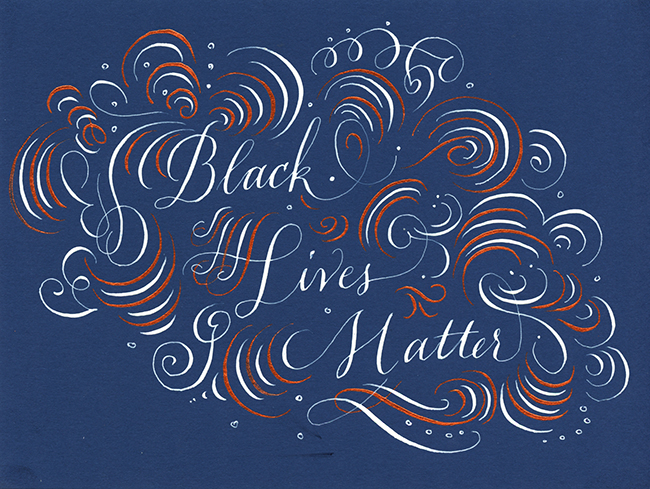 Black
Lives
Matter